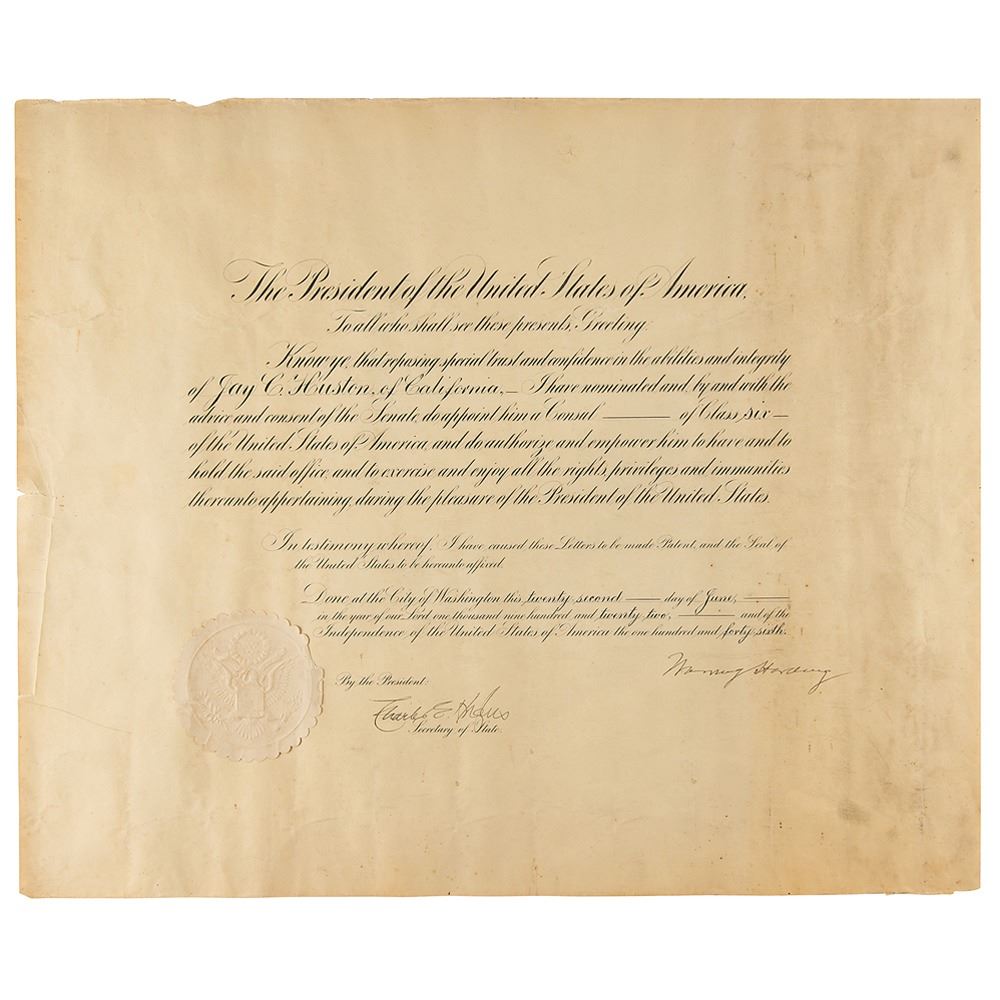 The President of the United States of America,
To all who shall see these presents, Greeting:
Know ye, that reposing special trust and confidence in the abilities and integrity
of Jay C. Huston, of California, — I have nominated and by and with the
advice and consent of the Senate, do appoint him a Consul — of Class six —
of the United States of America, and do authorize and empower him to have and to
hold the said office, and to exercise and enjoy all the rights, privileges and immunities
thereunto appertaining, during the pleasure of the President of the United States.
In testimony whereof, I have caused these Letters to be made Patent, and the Seal of
the United States to be hereunto affixed.
Done at the City of Washington this twenty second — day of June, —
in the year of our Lord one thousand nine hundred and twenty two, — and of the
Independence of the United States of America the one hundred and forty sixth.
Warren G Harding
By the President:
Charles E. Hughes
Secretary of State.